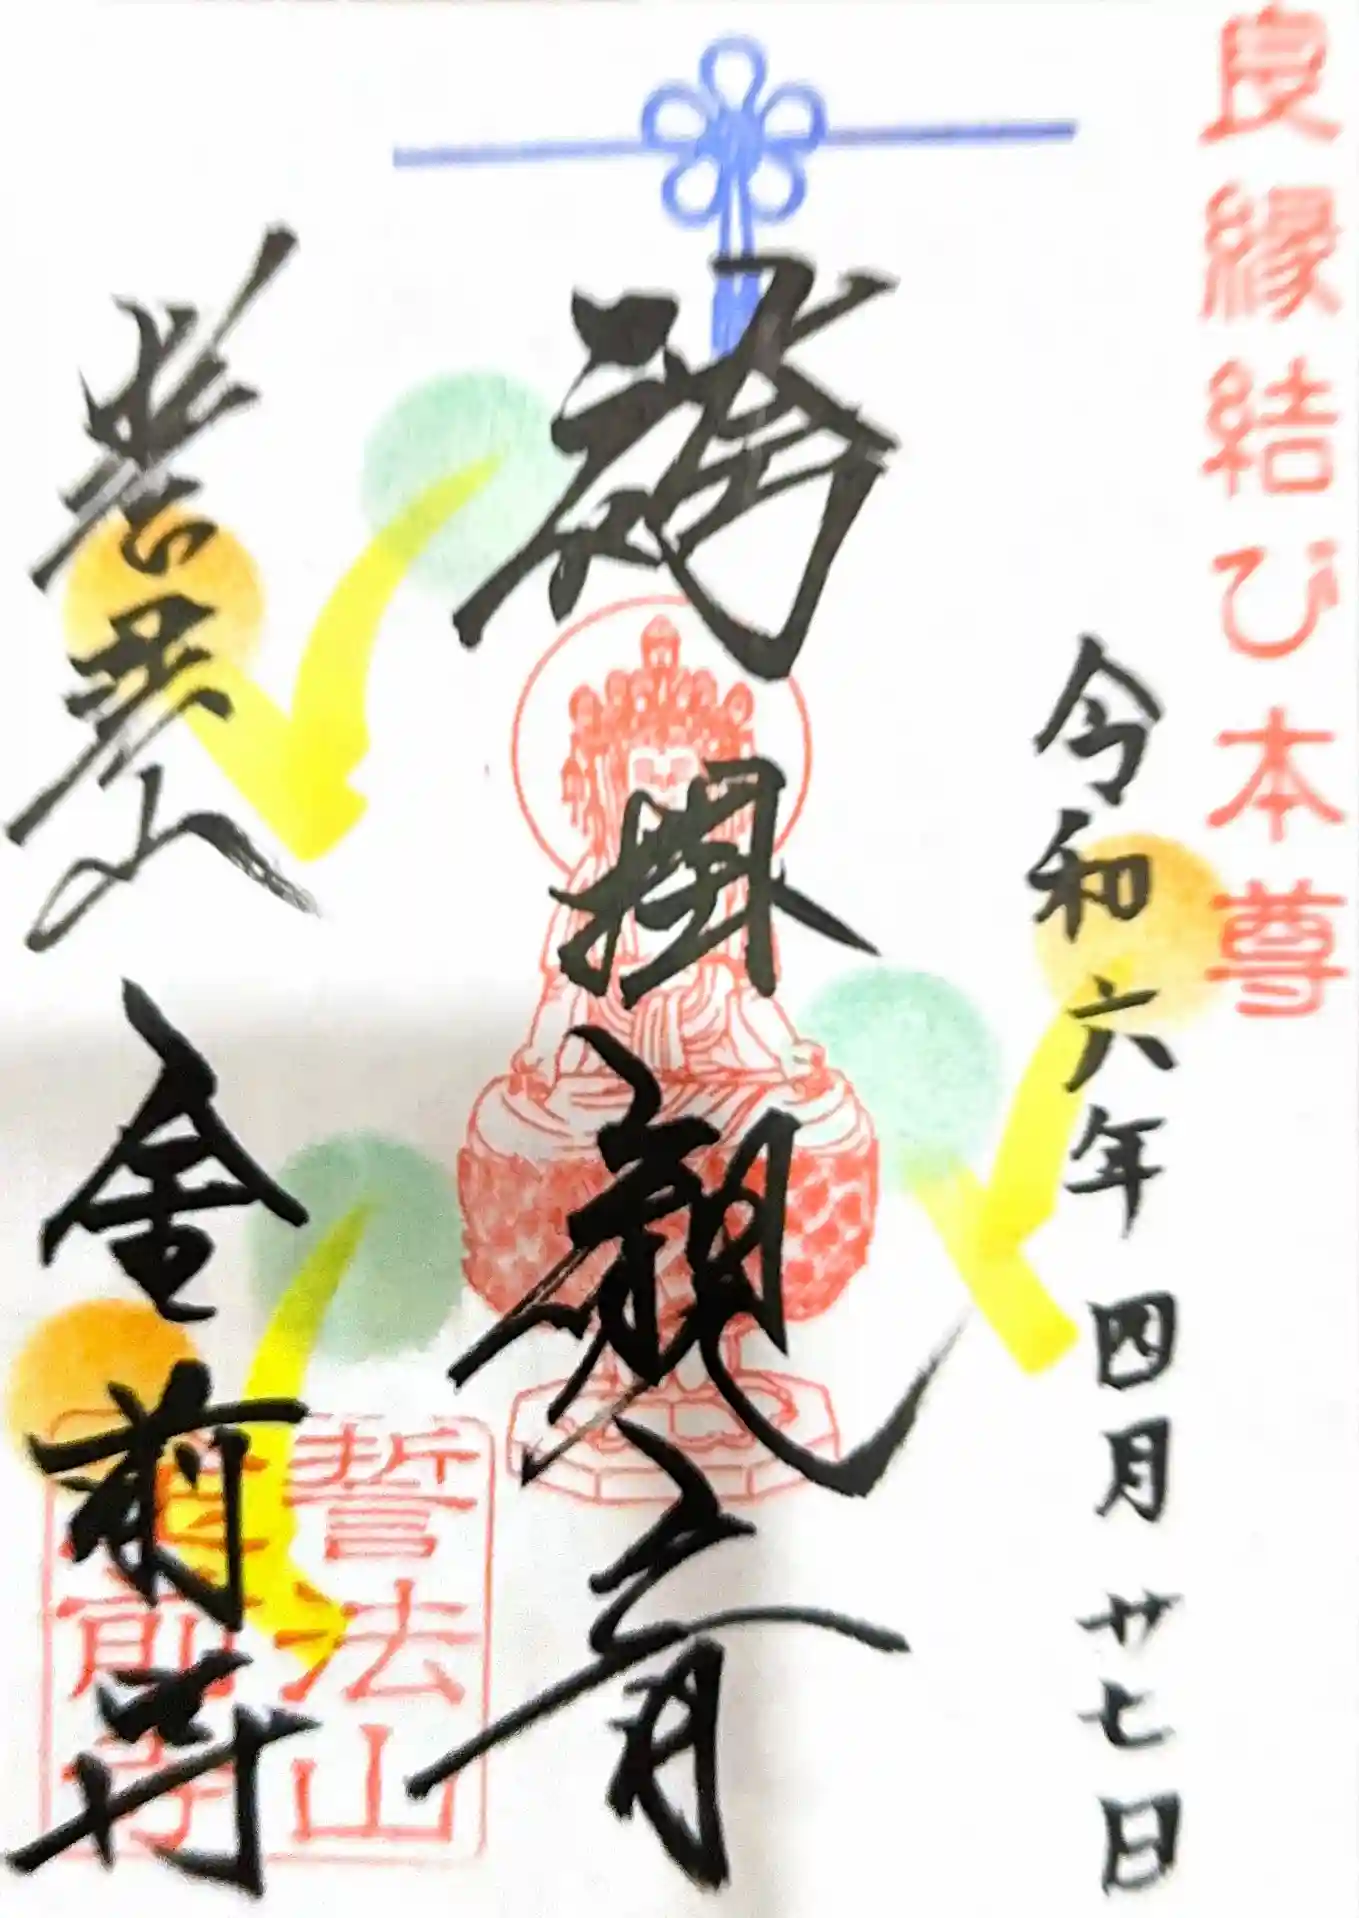 良縁結び本尊
令和六年四月廿七日
袴掛観音
誓法山 金前寺
誓法山
金前寺